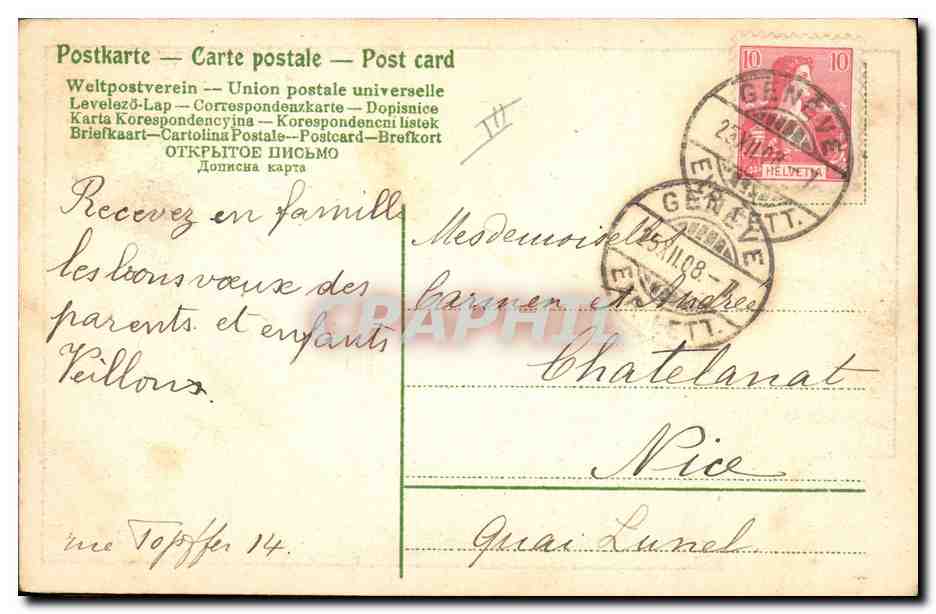 Postkarte — Carte postale — Post card
Weltpostverein -- Union postale universelle
Levelező-Lap — Correspondenzkarte — Dopisnice
Karta Korespondencyjna — Korespondencni listek
Briefkaart—Cartolina Postale--Postcard—Brefkort
ОТКРЫТОЕ ПИСЬМО
Дописна карта
III
10 10
HELVETIA
GENÈVE
EXP. LETT.
GENÈVE
XII.08-
EXP. LETT.
Recevez en famille
les bons vœux des
parents et enfants
Veilloux.
rue Topffer 14.
Mesdemoiselles
Carmen et Andrée
Chatelanat
Nice
Quai Lunel
CPAPHIL